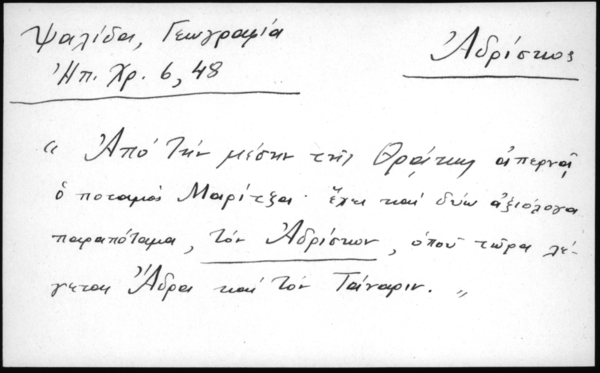 Ψαλίδα, Γεωγραφία
Ἠπ. Χρ. 6, 48
Ἀδρίσκος
« Ἀπό τήν μέσην τῆς Θρᾴκης ἀπερνᾷ
ὁ ποταμός Μαρίτζα· ἔχει καί δύω ἀξιόλογα
παραπόταμα, τόν Ἀδρίσκον, ὁποῦ τῶρα λέ-
γεται Ἄδρα καί τόν Ταίναριν. »